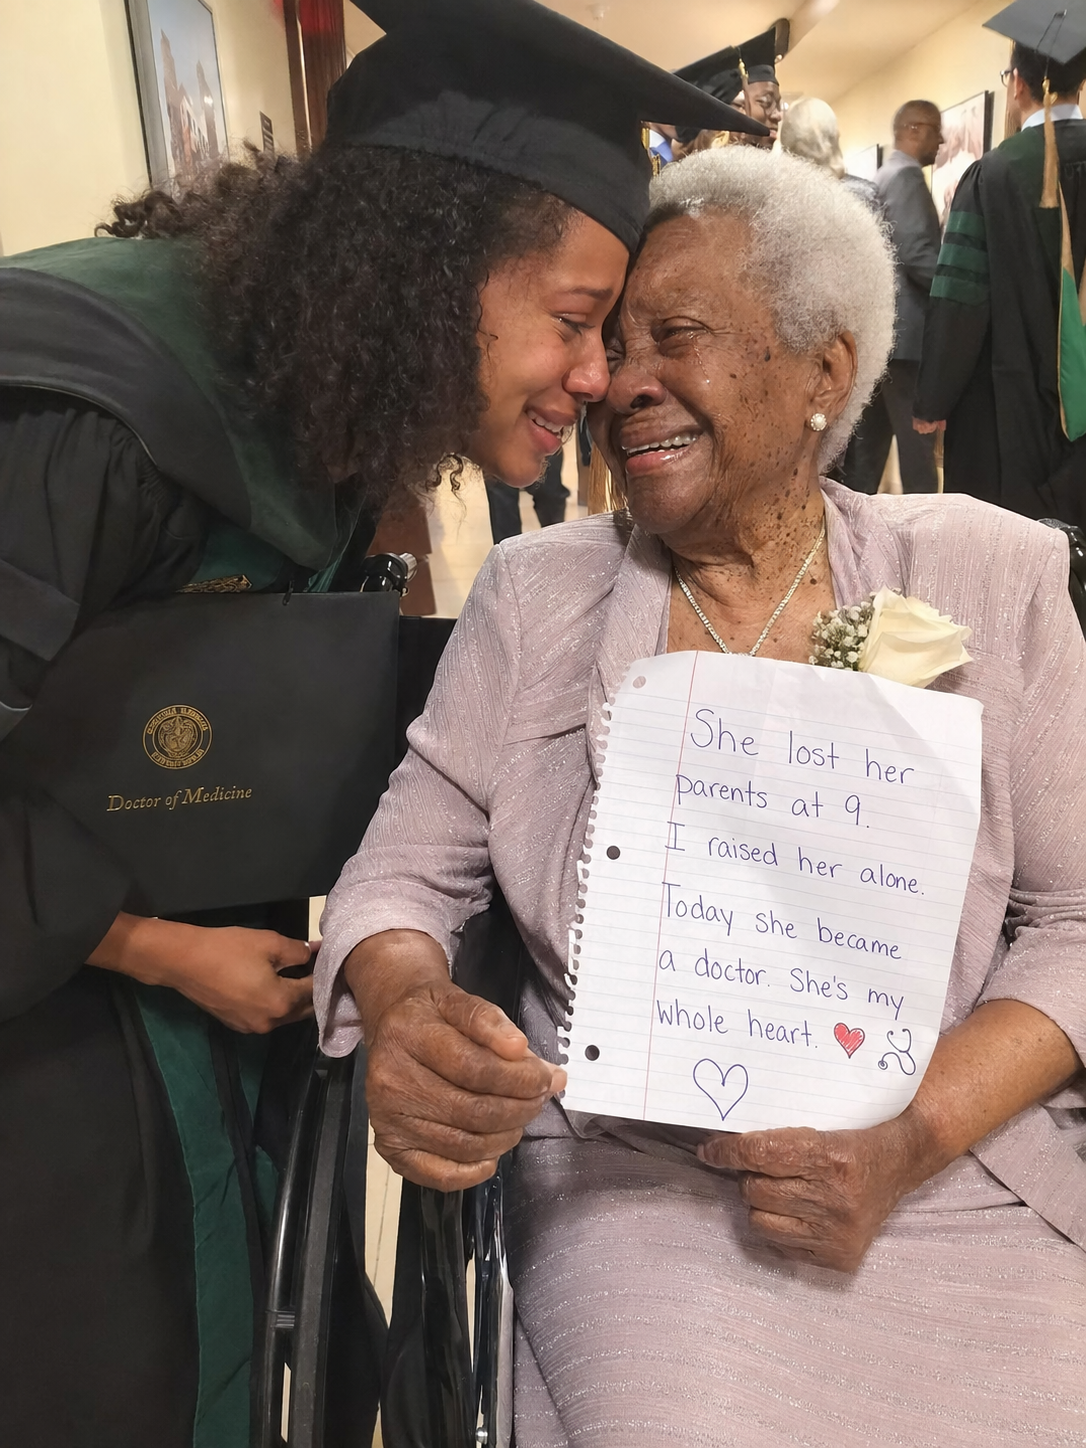 Doctor of Medicine
She lost her
parents at 9.
I raised her alone.
Today she became
a doctor. She's my
whole heart.